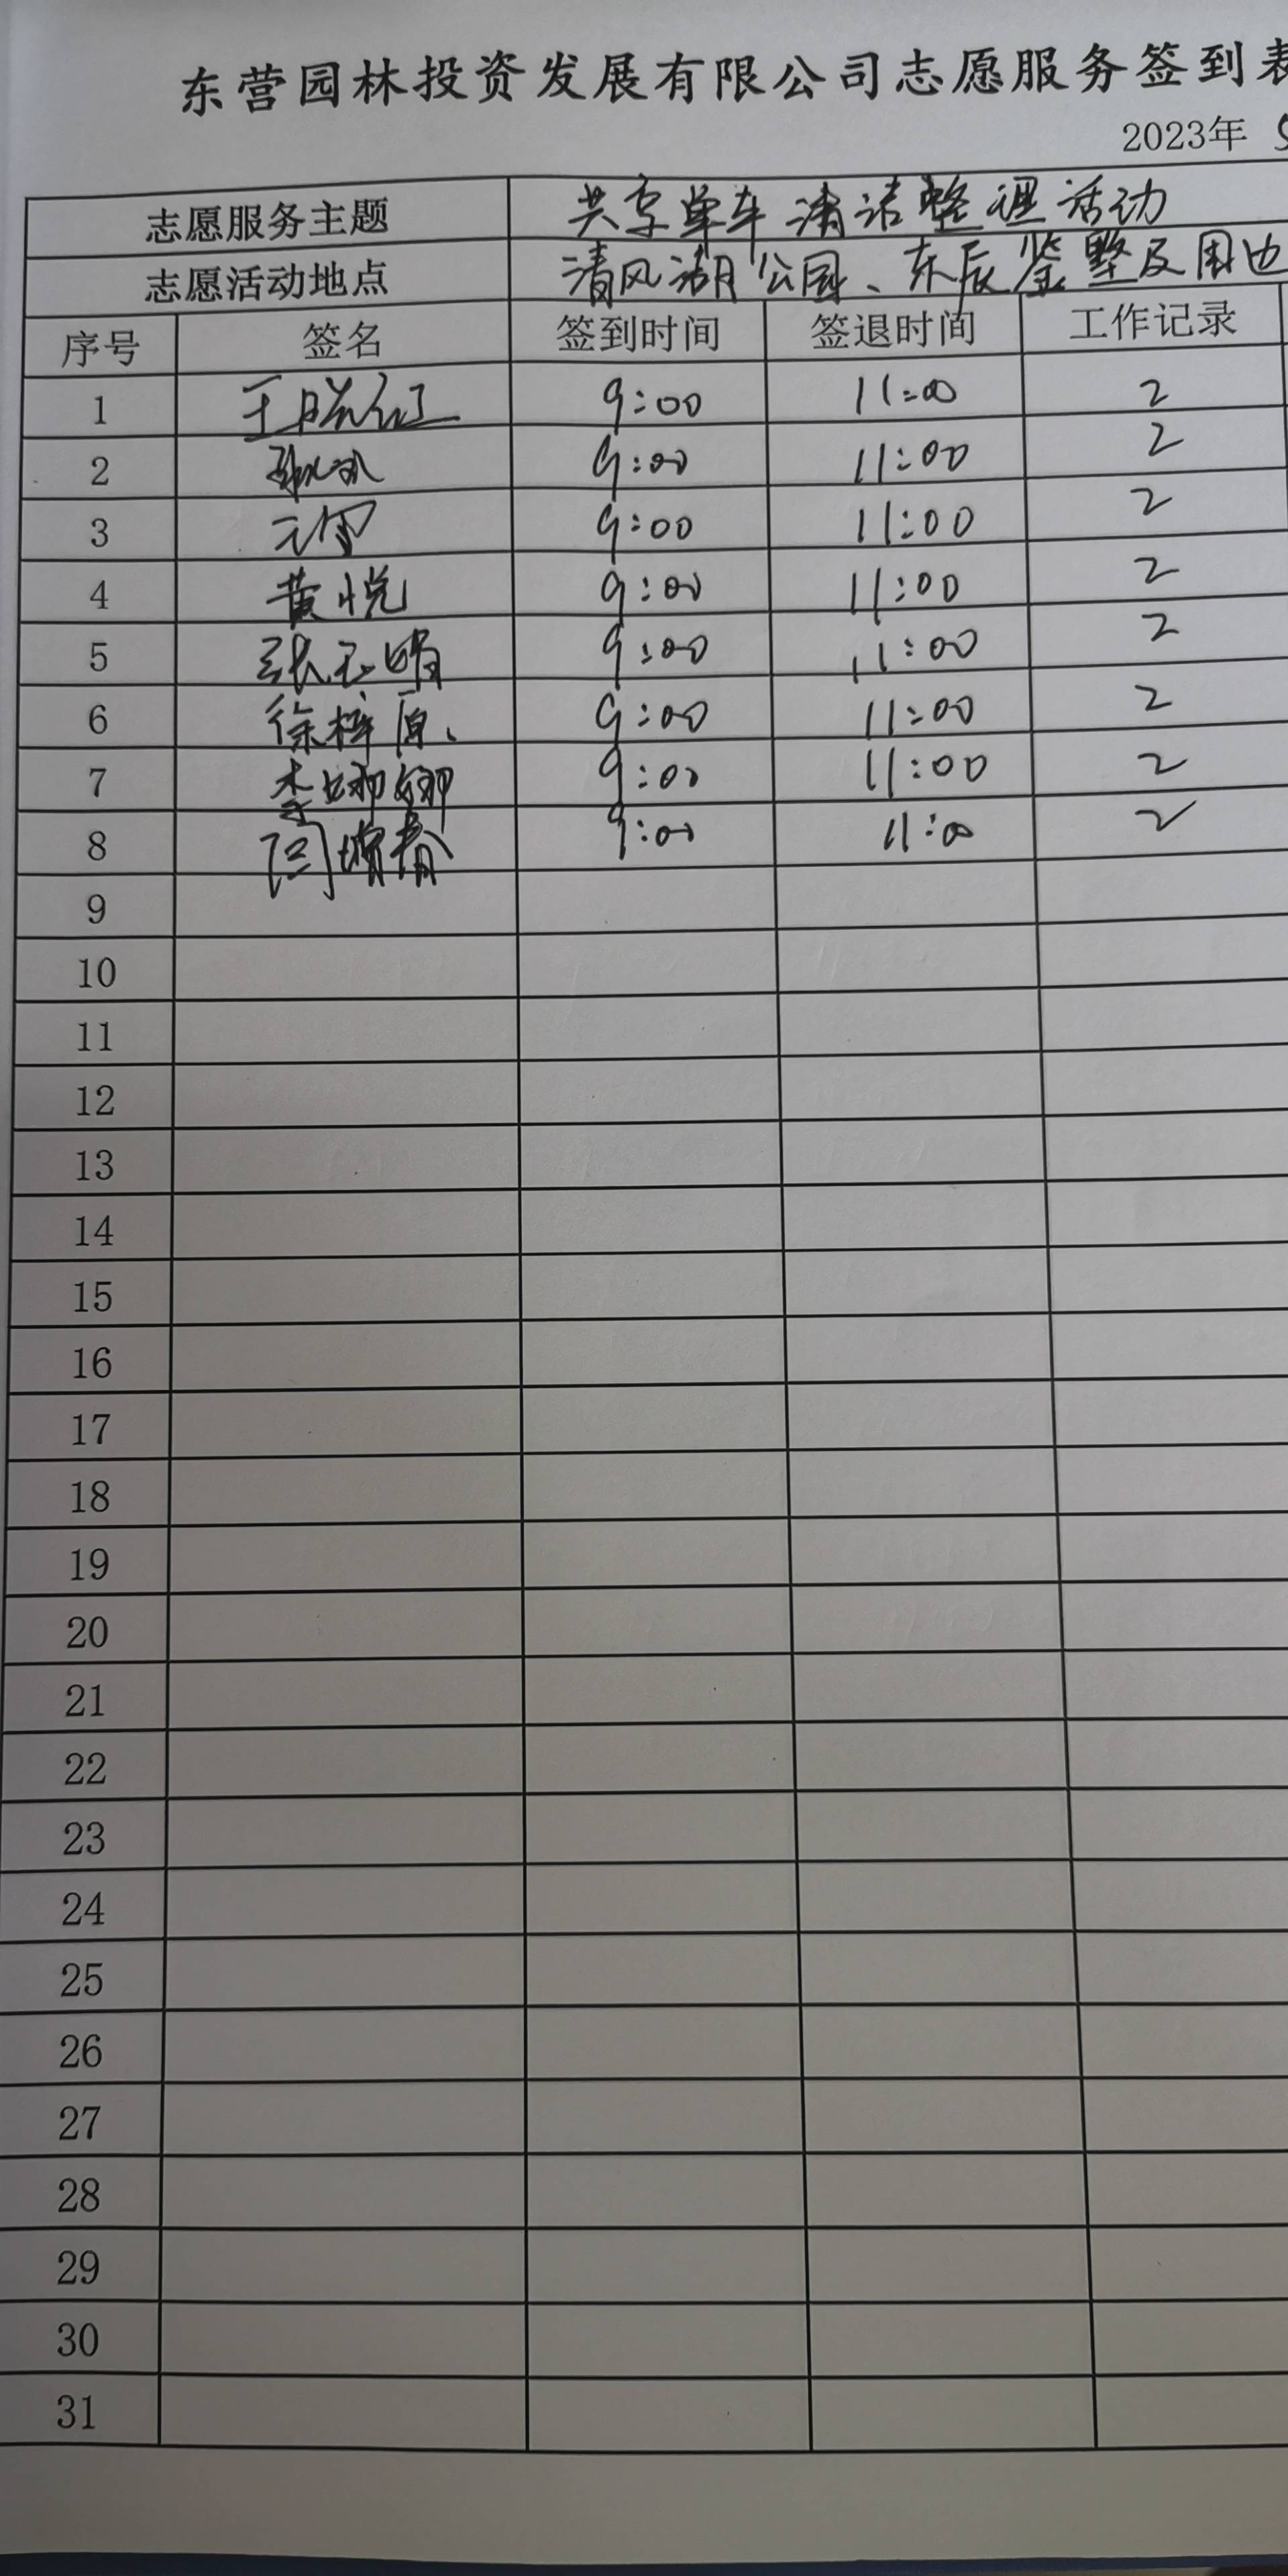 东营园林投资发展有限公司志愿服务签到表
2023年 5
志愿服务主题 共享单车清洁整理活动
志愿活动地点 清风湖公园、东辰鉴墅及周边
序号 签名 签到时间 签退时间 工作记录
1 王晓红 9:00 11:00 2
2 9:00 11:00 2
3 9:00 11:00 2
4 黄悦 9:00 11:00 2
5 张玉娟 9:00 11:00 2
6 徐梓原 9:00 11:00 2
7 李娜娜 9:00 11:00 2
8 闫增春 9:00 11:00 2
9
10
11
12
13
14
15
16
17
18
19
20
21
22
23
24
25
26
27
28
29
30
31